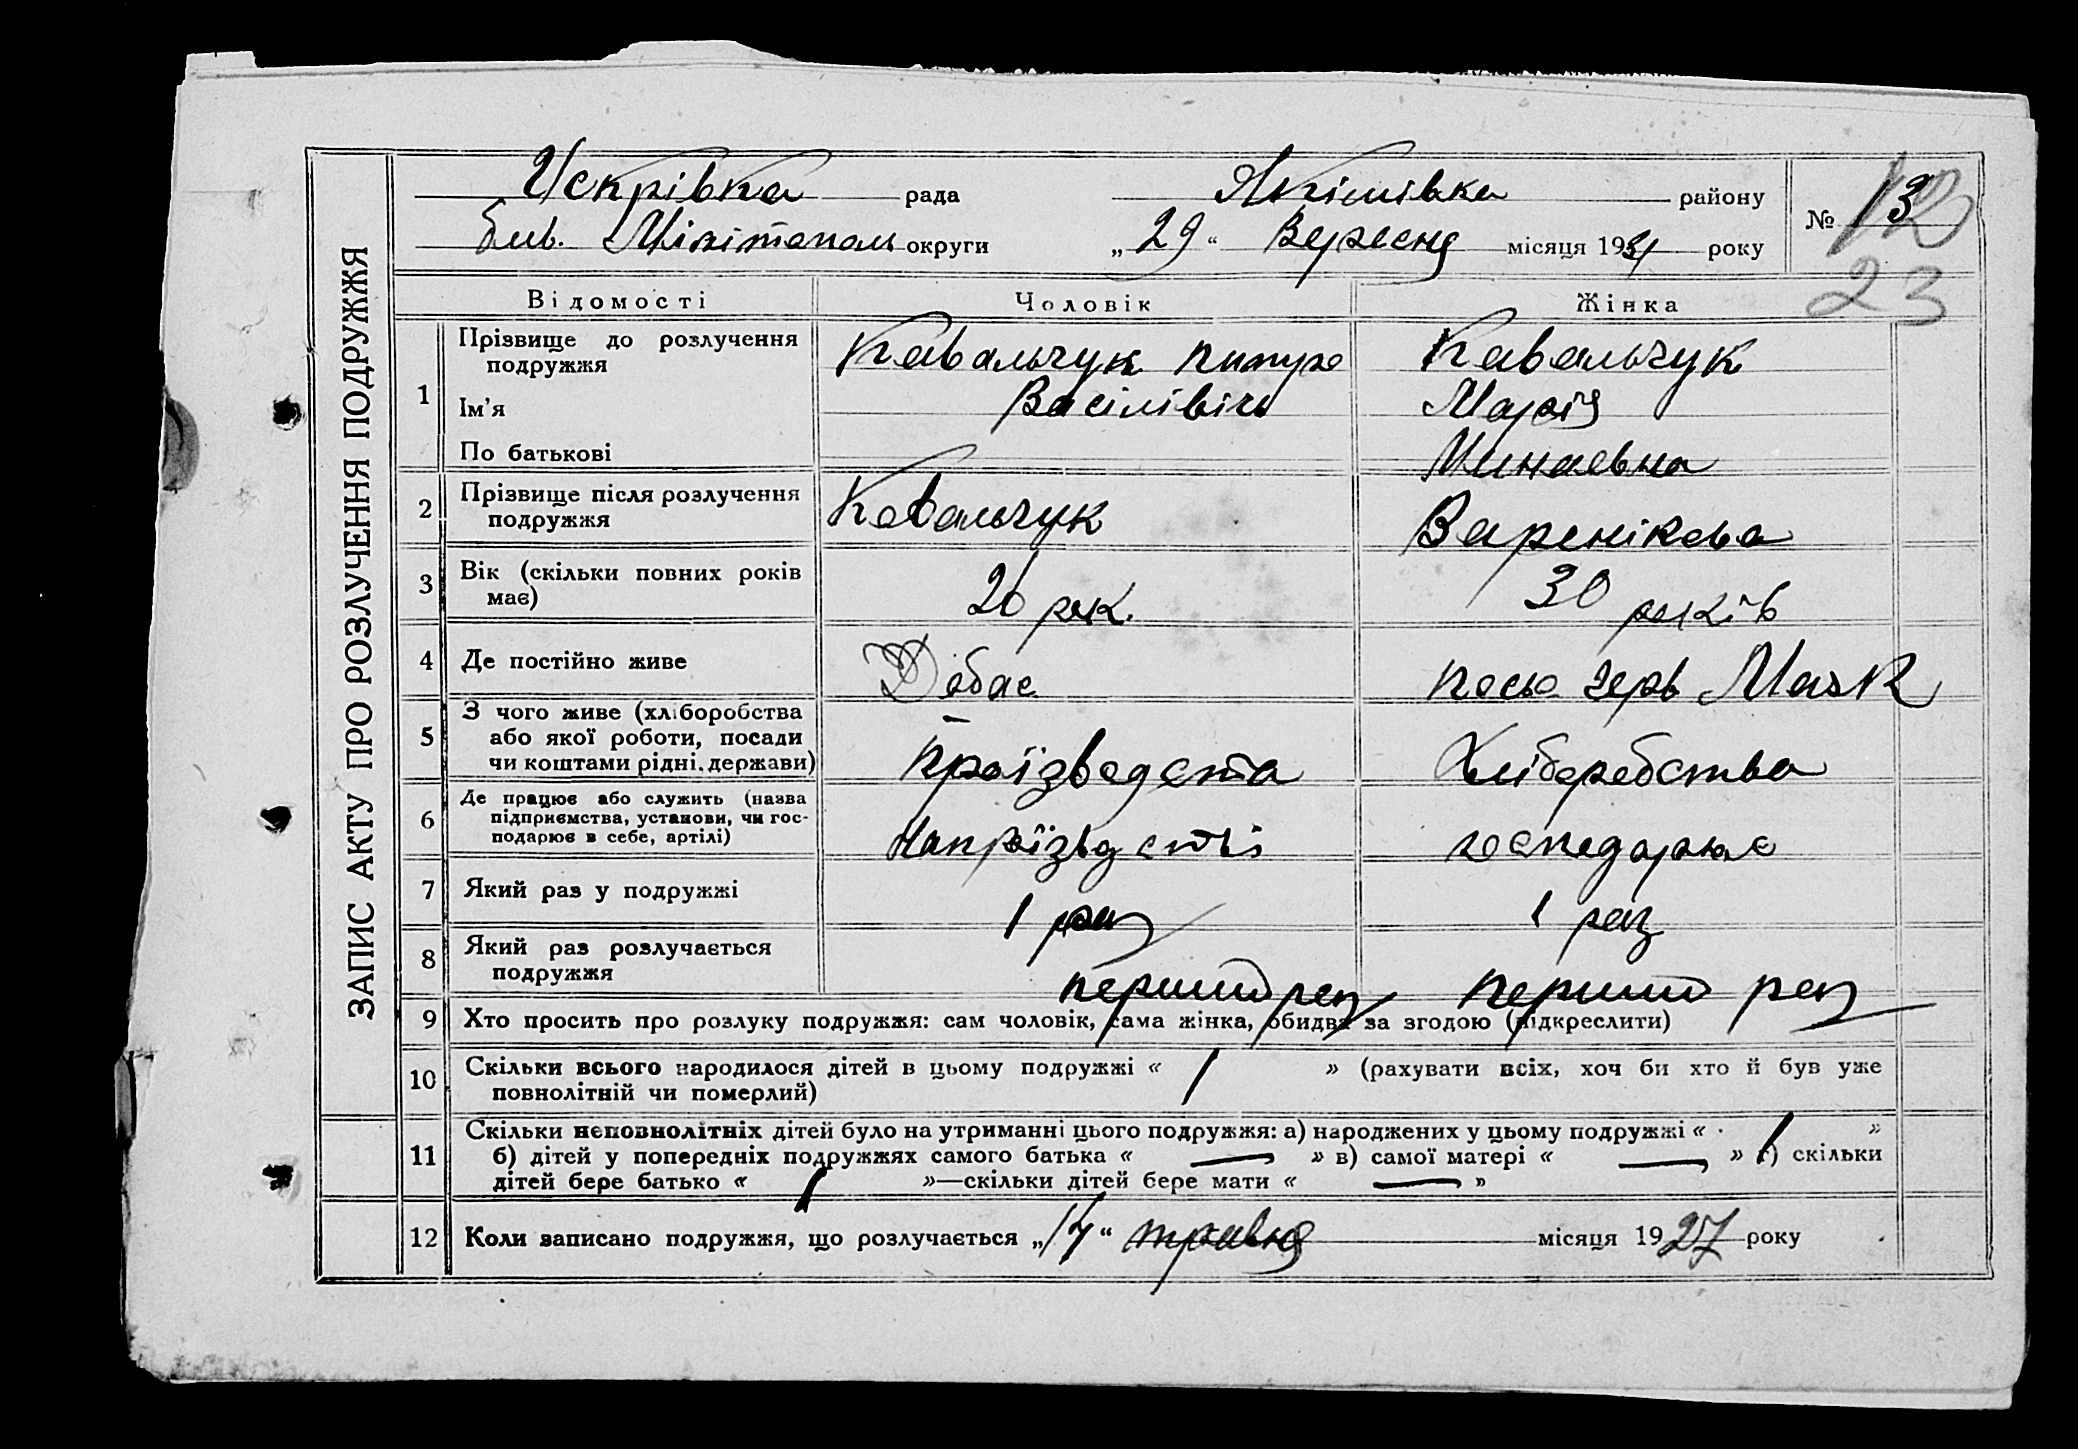 ЗАПИС АКТУ ПРО РОЗЛУЧЕННЯ ПОДРУЖЖЯ
Искрівка рада Якімівка району
бив. Мілітополь округи „29“ Вересня місяця 1931 року
№ 13
23
Відомості Чоловік Жінка
1 Прізвище до розлучення подружжя Кавальчук Кавальчук
Ім’я Васілівіч Марія
По батькові Минаевна
2 Прізвище після розлучення подружжя Ковальчук Варенікова
3 Вік (скільки повних років має) 26 рок. 30 років
4 Де постійно живе Маяк
5 З чого живе (хліборобства або якої роботи, посади чи коштами рідні, держави) Хліборобства
6 Де працює або служить (назва підприємства, установи, чи господарює в себе, артілі) господарює
7 Який раз у подружжі 1 раз 1 раз
8 Який раз розлучається подружжя перший раз перший раз
9 Хто просить про розлуку подружжя: сам чоловік, сама жінка, обидва за згодою (підкреслити)
10 Скільки всього народилося дітей в цьому подружжі « 1 » (рахувати всіх, хоч би хто й був уже
повнолітній чи померлий)
11 Скільки неповнолітніх дітей було на утриманні цього подружжя: а) народжених у цьому подружжі « 1 »
б) дітей у попередніх подружжях самого батька « — » в) самої матері « — » г) скільки
дітей бере батько « 1 »—скільки дітей бере мати « — »
12 Коли записано подружжя, що розлучається „14“ травня місяця 1927 року